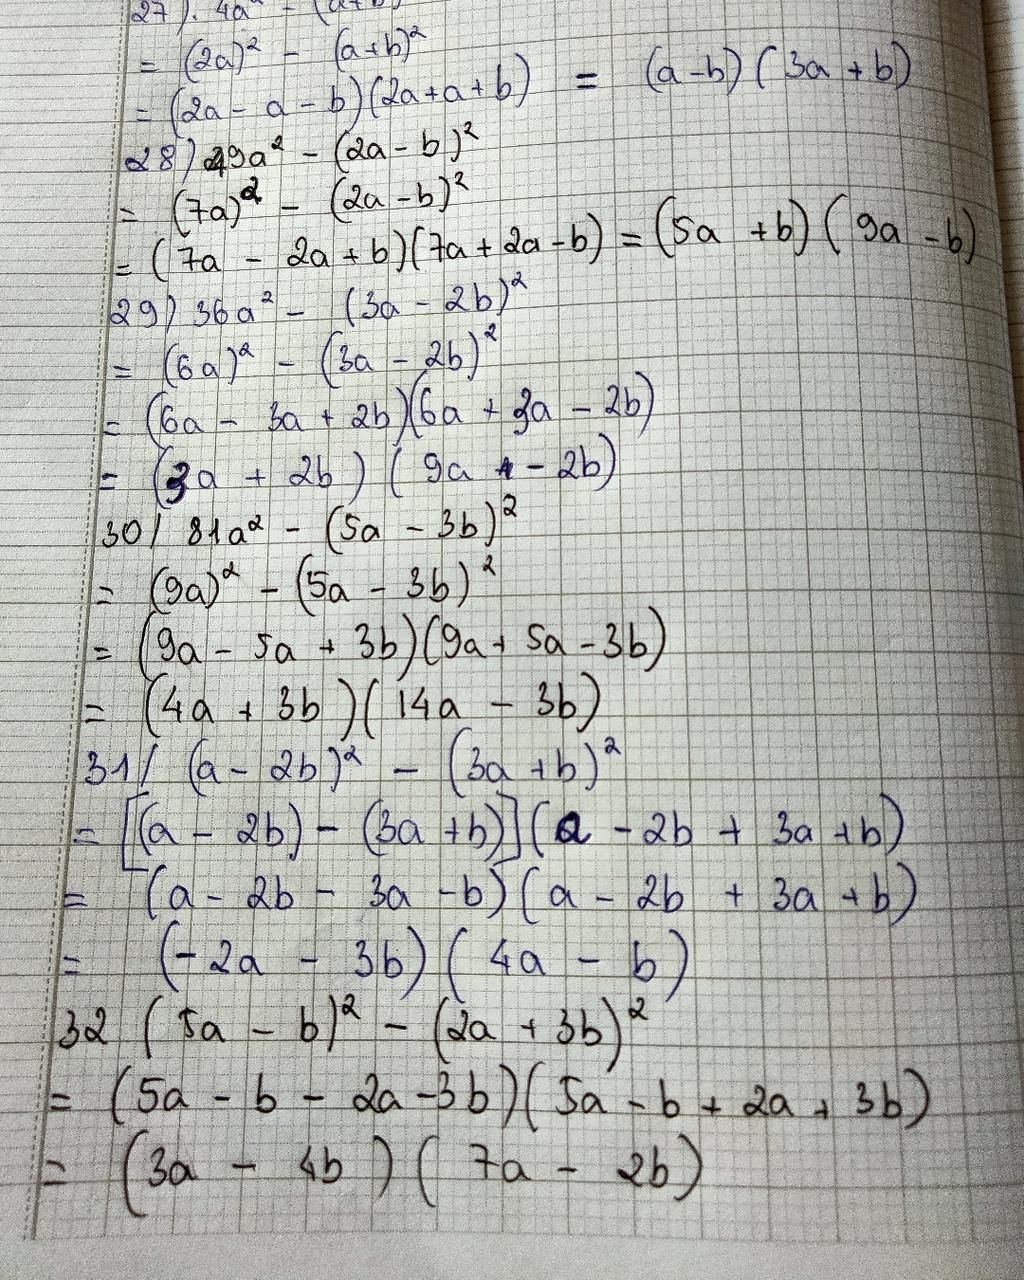 27). 4a² - (a+b)
= (2a)² - (a+b)²
= (2a - a - b)(2a+a+b) = (a-b)(3a+b)
28) 49a² - (2a - b)²
= (7a)² - (2a-b)²
= (7a - 2a + b)(7a + 2a - b) = (5a + b)(9a - b)
29) 36a² - (3a - 2b)²
= (6a)² - (3a - 2b)²
= (6a - 3a + 2b)(6a + 3a - 2b)
= (3a + 2b)(9a - 2b)
30/ 81a² - (5a - 3b)²
= (9a)² - (5a - 3b)²
= (9a - 5a + 3b)(9a + 5a - 3b)
= (4a + 3b)(14a - 3b)
31/ (a - 2b)² - (3a + b)²
= [(a - 2b) - (3a + b)](a - 2b + 3a + b)
= (a - 2b - 3a - b)(a - 2b + 3a + b)
= (-2a - 3b)(4a - b)
32 (5a - b)² - (2a + 3b)²
= (5a - b - 2a - 3b)(5a - b + 2a + 3b)
= (3a - 4b)(7a - 2b)